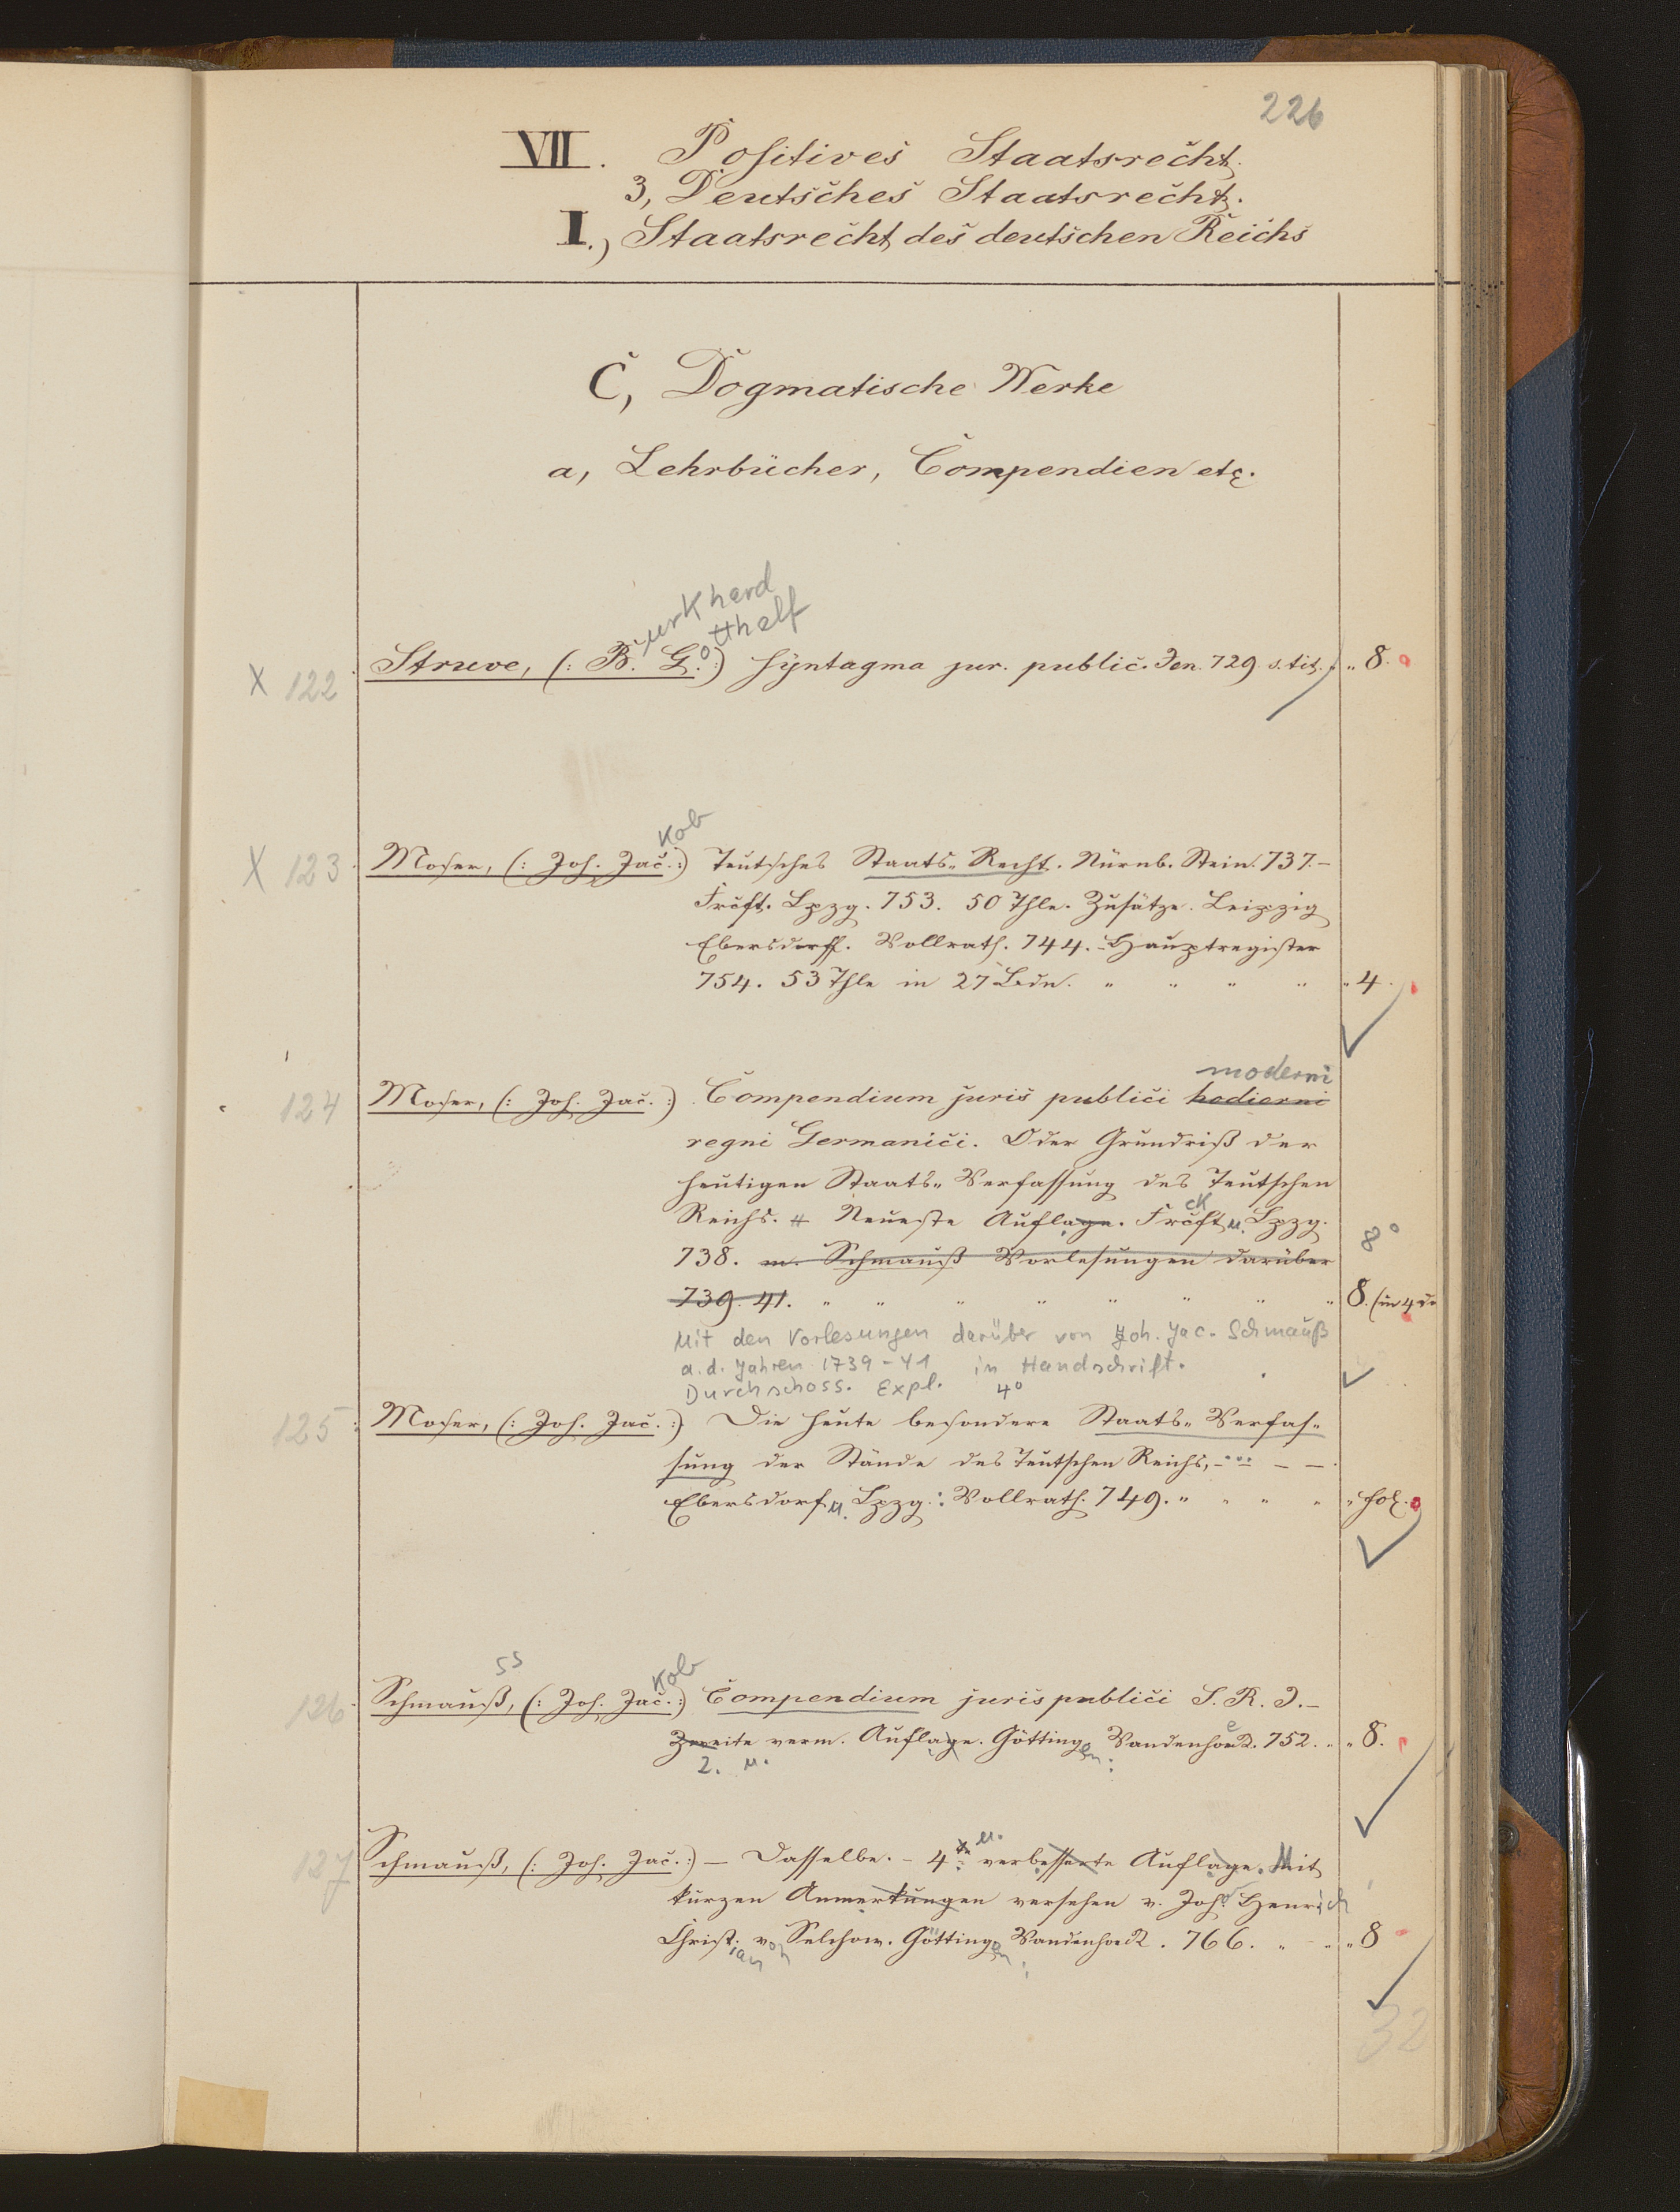 226
VII. Positives Staatsrecht.
3, Deutsches Staatsrecht.
I., Staatsrecht des deutschen Reichs
C, Dogmatische Werke
a, Lehrbücher, Compendien etc.
urkhard
otthelf
X 122 Struve, (: B. G. :) Syntagma jur. public. Jen. 729 s. tit. „ 8.
kob
X 123 Moser, (: Joh. Jac. :) Teutsches Staats-Recht. Nürnb. Stein. 737.–
Frcft. Lpzg. 753. 50 Thle. Zusätze. Leipzig
Ebersdorff. Vollrath. 744. – Hauptregister
754. 53 Thle in 27 Bdn. „ „ „ „ „ 4.
moderni
124 Moser, (: Joh. Jac. :) Compendium juris publici hodierni
regni Germanici. Oder Grundriß der
heutigen Staats-Verfassung des Teutschen
Reichs. # Neueste Auflage. Frckft u. Lpzg. 8°
738. m. Schmauß Vorlesungen darüber
739. 41. „ „ „ „ „ „ „ „ 8. (in 4
Mit den Vorlesungen darüber von Joh. Jac. Schmauß
a. d. Jahren 1739–41 in Handschrift.
Durchschoss. Expl. 4°
125 Moser, (: Joh. Jac. :) Die heute besondere Staats-Verfas-
sung der Stände des Teutschen Reichs,
Ebersdorf u. Lpzg.: Vollrath. 749. „ „ „ „ „ fol.
ss kob
126 Schmauß, (: Joh. Jac. :) Compendium juris publici S. R. I. –
Zweite verm. Auflage. Götting Vandenhoeck. 752. „ „ 8.
2. u. en:
u.
127 Schmauß, (: Joh. Jac. :) – Dasselbe. – 4te verbesserte Auflage. Mit
kurzen Anmerkungen versehen v. Joh. Henrich
Christ. v. Selchow. Götting Vandenhoeck. 766. „ „ „ 8
ian on en:
32